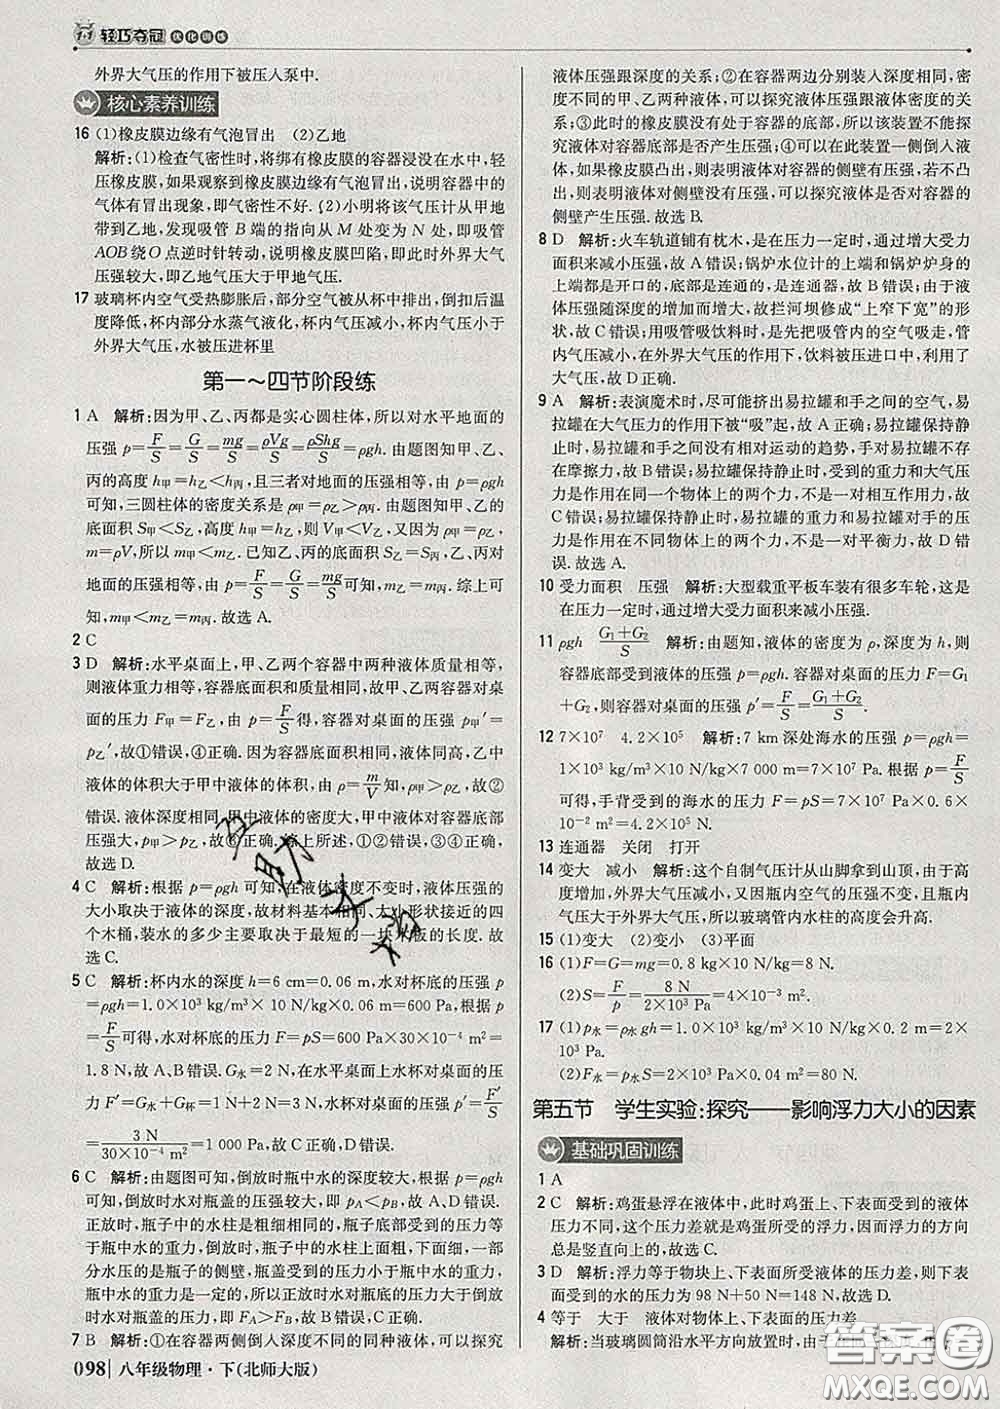 1+1 轻巧夺冠 优化训练
外界大气压的作用下被压入泵中.
核心素养训练
16 (1)橡皮膜边缘有气泡冒出 (2)乙地
解析:(1)检查气密性时,将绑有橡皮膜的容器浸没在水中,轻
压橡皮膜,如果观察到橡皮膜边缘有气泡冒出,说明容器中的
气体有冒出现象,即气密性不好.(2)小明将该气压计从甲地
带到乙地,发现吸管 B 端的指向从 M 处变为 N 处,即吸管
AOB绕O点逆时针转动,说明橡皮膜凹陷,即此时外界大气
压强较大,即乙地气压大于甲地气压.
17 玻璃杯内空气受热膨胀后,部分空气被从杯中排出,倒扣后温
度降低,杯内部分水蒸气液化,杯内气压减小,杯内气压小于
外界大气压,水被压进杯里
第一~四节阶段练
1 A 解析:因为甲、乙、丙都是实心圆柱体,所以对水平地面的
压强 p=F/S=G/S=mg/S=ρVg/S=ρShg/S=ρgh. 由题图知甲、乙、
丙的高度 h甲=h乙<h丙,且三者对地面的压强相等,由 p=ρgh
可知,三圆柱体的密度关系是 ρ甲=ρ乙>ρ丙. 由题图知甲、乙的
底面积 S甲<S乙,高度 h甲=h乙,则 V甲<V乙,又因为 ρ甲=ρ乙,
m=ρV,所以 m甲<m乙. 已知乙、丙的底面积 S乙=S丙,乙、丙对
地面的压强相等,由 p=F/S=G/S=mg/S可知,m乙=m丙. 综上可
知,m甲<m乙=m丙. 故选 A.
2 C
3 D 解析:水平桌面上,甲、乙两个容器中两种液体质量相等,
则液体重力相等,容器底面积和质量相等,故甲、乙两容器对桌
面的压力 F甲=F乙,由 p=F/S得,容器对桌面的压强 p甲′=
p乙′,故①错误,④正确. 因为容器底面积相等,液体同高,乙中
液体的体积大于甲中液体的体积,由 ρ=m/V知,ρ甲>ρ乙,故②
错误. 液体深度相等,甲中液体的密度大,甲中液体对容器底部
压强大,p甲>p乙,故③正确. 综上所述,①②错误,③④正确.
故选 D.
4 C 解析:根据 p=ρgh 可知,在液体密度不变时,液体压强的
大小取决于液体的深度,故材料基本相同、大小形状接近的四
个木桶,装水的多少主要取决于最短的一块木板的长度. 故
选 C.
5 C 解析:杯内水的深度 h=6 cm=0.06 m,水对杯底的压强 p=
ρgh=1.0×10³ kg/m³×10 N/kg×0.06 m=600 Pa,根据 p=
F/S可得,水对杯底的压力 F=pS=600 Pa×30×10⁻⁴ m²=
1.8 N,故 A、B错误. G水=2 N,在水平桌面上水杯对桌面的压
力 F′=G水+G杯=1 N+2 N=3 N,水杯对桌面的压强 p′=F′/S
=3 N/(30×10⁻⁴ m²)=1 000 Pa,故 C 正确,D 错误. 故选 C.
6 C 解析:由题图可知,倒放时瓶中水的深度较大,根据 p=ρgh
可知,倒放时水对瓶盖的压强较大,即 pA<pB,故 A、D 错误.
正放时,瓶子中的水柱是粗细相同的,瓶子底部受到的压力等
于瓶中水的重力,倒放时,瓶子中的水柱上面粗,下面细,一部
分水压的是瓶子的侧壁,瓶盖受到的压力小于瓶中水的重力,
瓶中水的重力是一定的,所以正放时水对瓶底的压力大于倒放
时水对瓶盖的压力,即 FA>FB,故 B 错误,C 正确. 故选 C.
7 B 解析:①在容器两侧倒入深度不同的同种液体,可以探究
098 八年级物理·下(北师大版)
液体压强跟深度的关系;②在容器两边分别装入深度相同,密
度不同的甲、乙两种液体,可以探究液体压强跟液体密度的关
系;③此时的橡皮膜没有处于容器的底部,所以该装置不能探
究液体对容器底部是否产生压强;④可以在装置一侧倒入液
体,如果橡皮膜凸出,则表明液体对侧壁有压强,若不凸
出,则表明液体对侧壁没有压强,可以探究液体是否对容器的
侧壁产生压强. 故选 B.
8 D 解析:火车轨道铺有枕木,是在压力一定时,通过增大受力
面积来减小压强,故 A 错误;锅炉水位计的上端和锅炉炉身的
上端都是开口的,底部是连通的,是连通器,故 B 错误;由于液
体压强随深度的增加而增大,故拦河坝修成“上窄下宽”的形
状,故 C 错误;用吸管吸饮料时,是先把吸管内的空气吸走,管
内气压减小,在外界大气压的作用下,饮料被压进口中,利用了
大气压,故 D 正确.
9 A 解析:表演魔术时,尽可能挤出易拉罐和手之间的空气,易
拉罐在大气压力的作用下被“吸”起,故 A 正确;易拉罐保持静
止时,易拉罐和手之间没有相对运动的趋势,手对易拉罐不存
在摩擦力,故 B 错误;易拉罐保持静止时,受到的重力和大气压
力是作用在同一个物体上的两个力,不是一对相互作用力,故 C
错误;易拉罐保持静止时,易拉罐的重力和易拉罐对手的压力
是作用在不同物体上的两个力,不是一对平衡力,故 D 错
误. 故选 A.
10 受力面积 压强 解析:大型载重平板车装有很多车轮,这是
在压力一定时,通过增大受力面积来减小压强.
11 ρgh (G₁+G₂)/S 解析:由题知,液体的密度为 ρ,深度为 h,则
容器底部受到液体的压强 p=ρgh. 容器对桌面的压力 F=G₁
+G₂,则容器对桌面的压强 p′=F/S=(G₁+G₂)/S.
12 7×10⁷ 4.2×10⁵ 解析:7 km 深处海水的压强 p=ρgh=
1×10³ kg/m³×10 N/kg×7 000 m=7×10⁷ Pa. 根据 p=F/S
可得,手背受到的海水的压力 F=pS=7×10⁷ Pa×0.6×
10⁻² m²=4.2×10⁵ N.
13 连通器 关闭 打开
14 变大 减小 解析:这个自制气压计从山脚拿到山顶,由于高
度增加,外界大气压减小,又因瓶内空气的压强不变,且瓶内
气压大于外界大气压,所以玻璃管内水柱的高度会升高.
15 (1)变大 (2)变小 (3)平面
16 (1)F=G=mg=0.8 kg×10 N/kg=8 N.
(2)S=F/p=8 N/(2×10³ Pa)=4×10⁻³ m².
17 (1)p水=ρ水gh=1.0×10³ kg/m³×10 N/kg×0.2 m=2×
10³ Pa.
(2)F水=p水S=2×10³ Pa×0.04 m²=80 N.
第五节 学生实验:探究——影响浮力大小的因素
基础巩固训练
1 A
2 C 解析:鸡蛋悬浮在液体中,此时鸡蛋上、下表面受到的液体
压力不同,这个压力差就是鸡蛋所受的浮力,因而浮力的方向
总是竖直向上的. 故选 C.
3 D 解析:浮力等于物块上、下表面所受液体的压力差,则下表
面受到的水的压力为 98 N+50 N=148 N. 故选 D.
4 等于 大于 液体对物体上、下表面的压力差
解析:当玻璃圆筒沿水平方向放置时,由于
答案圈
MXQE.COM